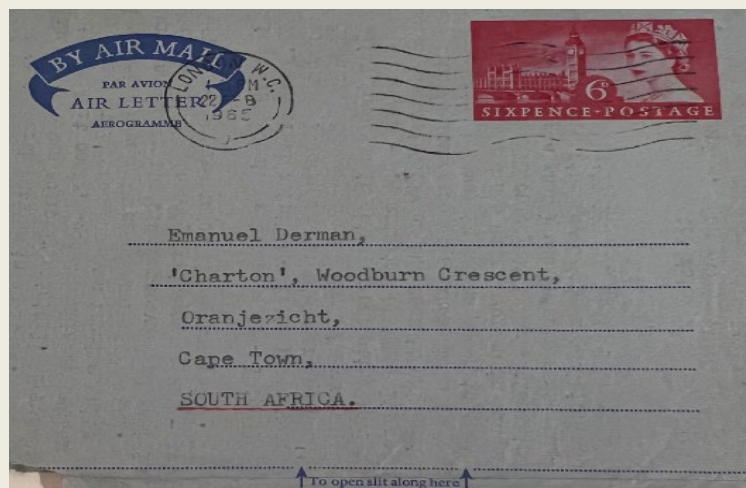 BY AIR MAIL
PAR AVION
AIR LETTER
AEROGRAMME
LONDON W.C.
22
1965
6D
SIXPENCE·POSTAGE
Emanuel Derman,
'Charton', Woodburn Crescent,
Oranjezicht,
Cape Town,
SOUTH AFRICA.
To open slit along here